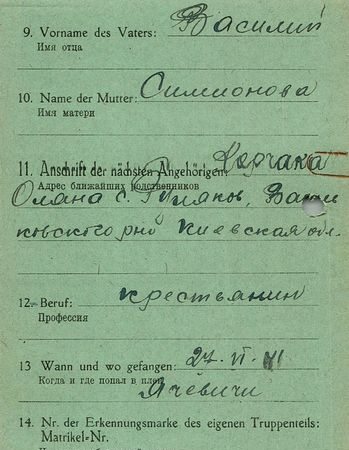 9. Vorname des Vaters: Василий
Имя отца
10. Name der Mutter: Симионова
Имя матери
11. Anschrift der nächsten Angehörigen: Корчака
Адрес ближайших родственников
Оляна с.
ковского рно Киевская обл.
12. Beruf: крестьянин
Профессия
13 Wann und wo gefangen: 27. VI 41
Когда и где попал в плен
Ячевичи
14. Nr. der Erkennungsmarke des eigenen Truppenteils:
Matrikel-Nr.